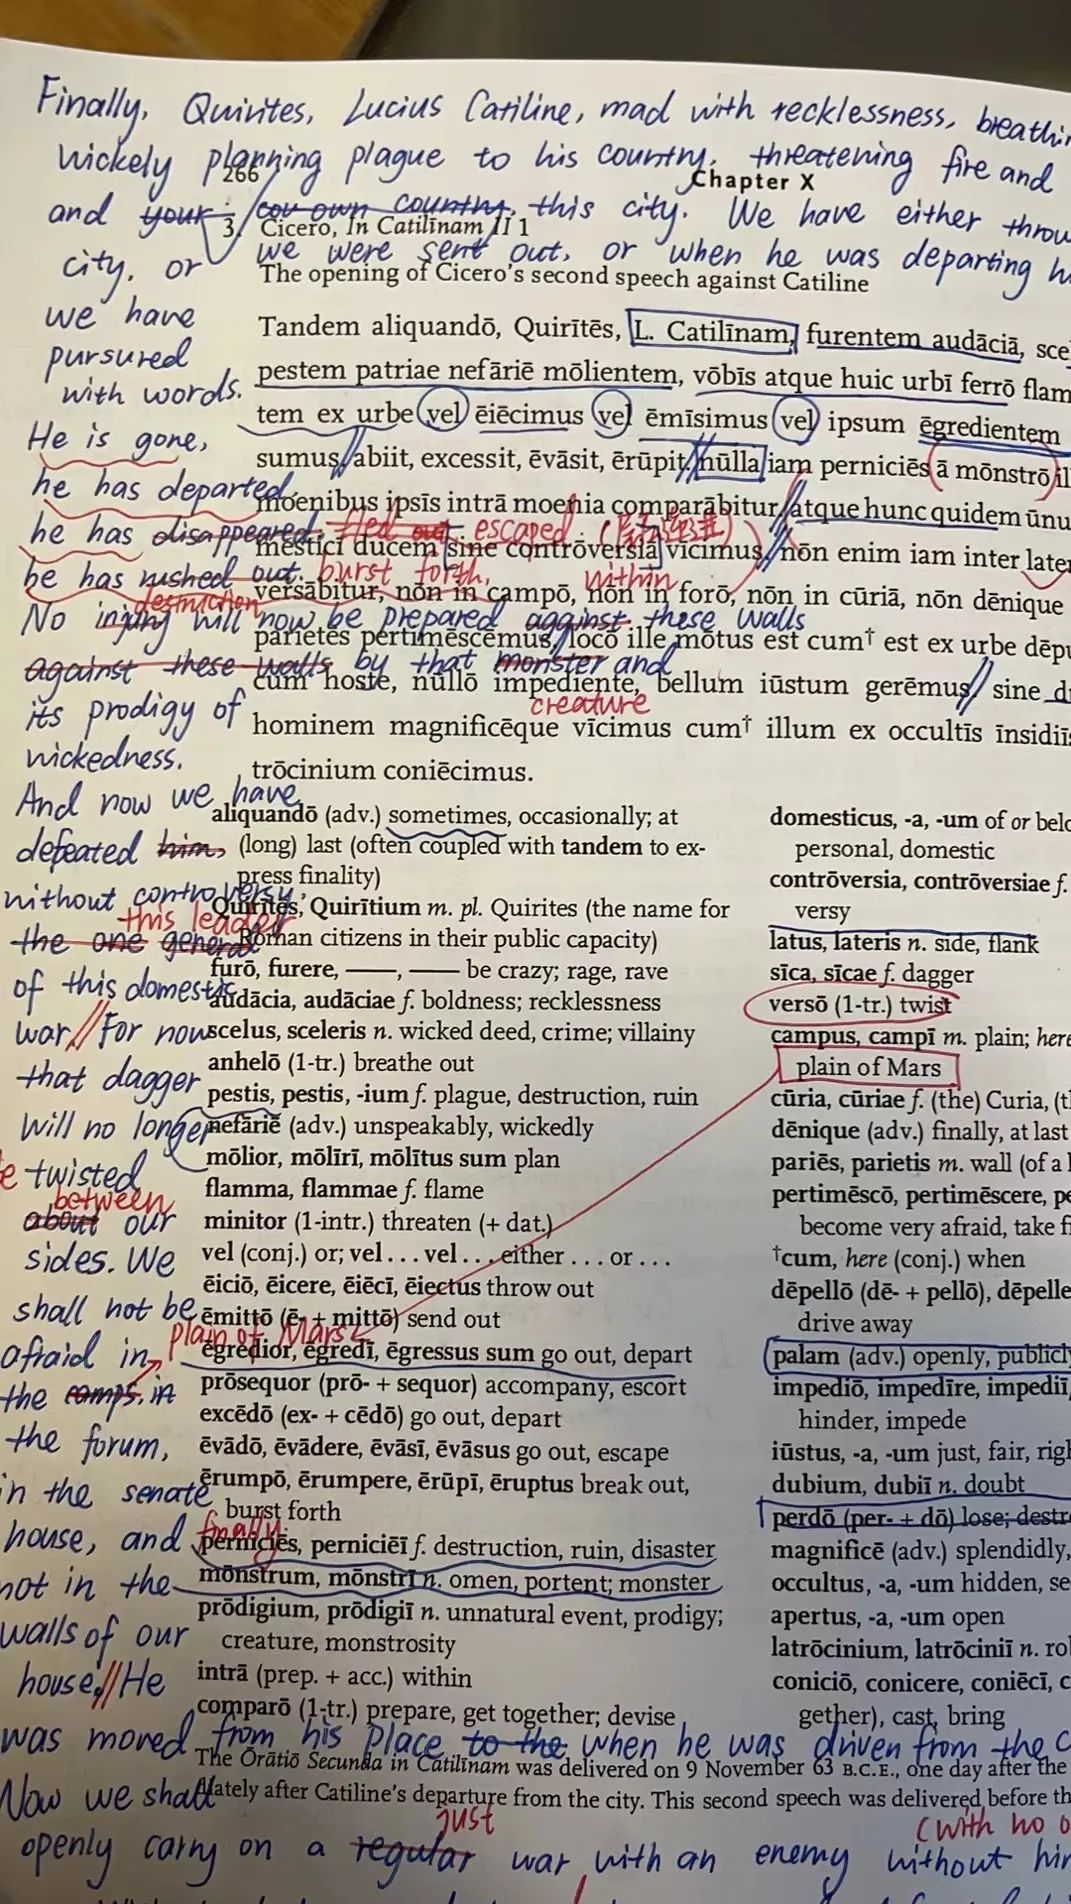 Finally, Quirites, Lucius Catiline, mad with recklessness,
Wickely planning plague to his country, threatening fire and
266
Chapter X
and your cou own country, this city. We have either
3 Cicero, In Catilīnam II 1
city, or we were sent out, or when he was departing
The opening of Cicero's second speech against Catiline
we have
pursured
with words.
Tandem aliquandō, Quirītēs, L. Catilīnam, furentem audāciā,
pestem patriae nefāriē mōlientem, vōbīs atque huic urbī ferrō
tem ex urbe vel ēiēcimus vel ēmīsimus vel ipsum ēgredientem
sumus, abiit, excessit, ēvāsit, ērūpit, nūlla iam perniciēs ā mōnstrō
moenibus ipsīs intrā moenia comparābitur, atque hunc quidem
mesticī ducem sine contrōversiā vīcimus, nōn enim iam inter
versābitur, nōn in campō, nōn in forō, nōn in cūriā, nōn dēnique
parietēs pertimēscēmus, locō ille mōtus est cum† est ex urbe
cum hoste, nūllō impediente, bellum iūstum gerēmus, sine
hominem magnificēque vīcimus cum† illum ex occultīs
trōcinium coniēcimus.
He is gone,
he has departed
he has disappeared. fled out escaped
he has rushed out. burst forth,
within
destruction
No injury will now be prepared against these walls
against these walls by that monster and
creature
its prodigy of
wickedness.
And now we have
defeated him,
without controversy,
this leader
the one general
of this domestic
war // For now
that dagger
will no longer
twisted
between
about our
sides. We
shall not be
plain of Mars
afraid in
the camps, in
the forum,
in the senate
house, and
finally
not in the
walls of our
house // He
aliquandō (adv.) sometimes, occasionally; at
(long) last (often coupled with tandem to ex-
press finality)
Quirītēs, Quirītium m. pl. Quirites (the name for
Roman citizens in their public capacity)
furō, furere, ——, —— be crazy; rage, rave
audācia, audāciae f. boldness; recklessness
scelus, sceleris n. wicked deed, crime; villainy
anhelō (1-tr.) breathe out
pestis, pestis, -ium f. plague, destruction, ruin
nefāriē (adv.) unspeakably, wickedly
mōlior, mōlīrī, mōlītus sum plan
flamma, flammae f. flame
minitor (1-intr.) threaten (+ dat.)
vel (conj.) or; vel . . . vel . . . either . . . or . . .
ēiciō, ēicere, ēiēcī, ēiectus throw out
ēmittō (ē- + mittō) send out
ēgredior, ēgredī, ēgressus sum go out, depart
prōsequor (prō- + sequor) accompany, escort
excēdō (ex- + cēdō) go out, depart
ēvādō, ēvādere, ēvāsī, ēvāsus go out, escape
ērumpō, ērumpere, ērūpī, ēruptus break out,
burst forth
perniciēs, perniciēī f. destruction, ruin, disaster
mōnstrum, mōnstrī n. omen, portent; monster
prōdigium, prōdigiī n. unnatural event, prodigy;
creature, monstrosity
intrā (prep. + acc.) within
comparō (1-tr.) prepare, get together; devise
domesticus, -a, -um of or
personal, domestic
contrōversia, contrōversiae f.
versy
latus, lateris n. side, flank
sīca, sīcae f. dagger
versō (1-tr.) twist
campus, campī m. plain; here
plain of Mars
cūria, cūriae f. (the) Curia,
dēnique (adv.) finally, at last
pariēs, parietis m. wall (of a
pertimēscō, pertimēscere,
become very afraid, take
†cum, here (conj.) when
dēpellō (dē- + pellō),
drive away
palam (adv.) openly, publicly
impediō, impedīre, impediī,
hinder, impede
iūstus, -a, -um just, fair,
dubium, dubiī n. doubt
perdō (per- + dō) lose;
magnificē (adv.) splendidly,
occultus, -a, -um hidden,
apertus, -a, -um open
latrōcinium, latrōciniī n.
coniciō, conicere, coniēcī,
gether), cast, bring
was moved from his place to the when he was driven from the
The Ōrātiō Secunda in Catilīnam was delivered on 9 November 63 B.C.E., one day after the
Now we shall
lately after Catiline's departure from the city. This second speech was delivered before
just
(with no
openly carry on a regular war with an enemy without